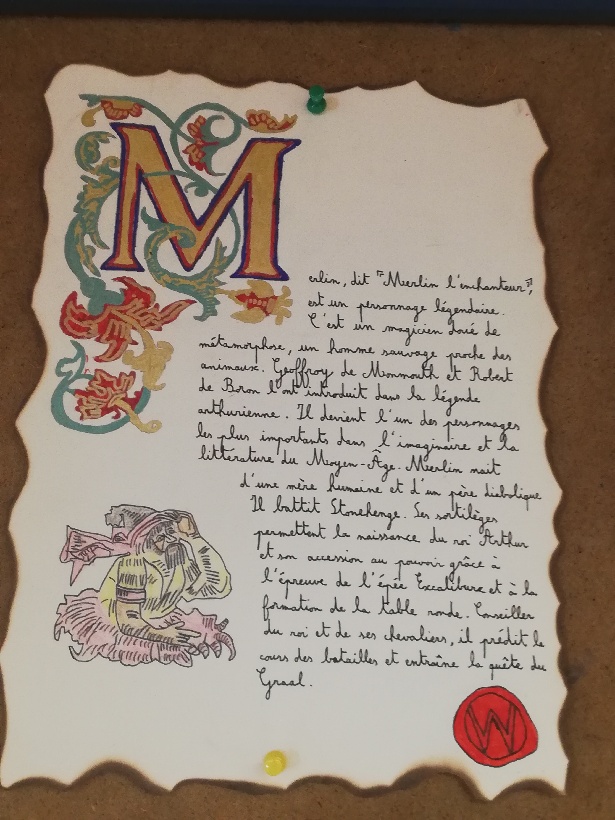 Merlin, dit "Merlin l'enchanteur",
est un personnage légendaire.
C'est un magicien doué de
métamorphose, un homme sauvage proche des
animaux. Geoffroy de Monmouth et Robert
de Boron l'ont introduit dans la légende
arthurienne. Il devient l'un des personnages
les plus importants dans l'imaginaire et la
littérature du Moyen-Âge. Merlin nait
d'une mère humaine et d'un père diabolique
Il battit Stonehenge. Ses sortilèges
permettent la naissance du roi Arthur
et son accession au pouvoir grâce à
l'épreuve de l'épée Excalibure et à la
formation de la table ronde. Conseiller
du roi et de ses chevaliers, il prédit le
cours des batailles et entraîne la quête du
Graal.
W